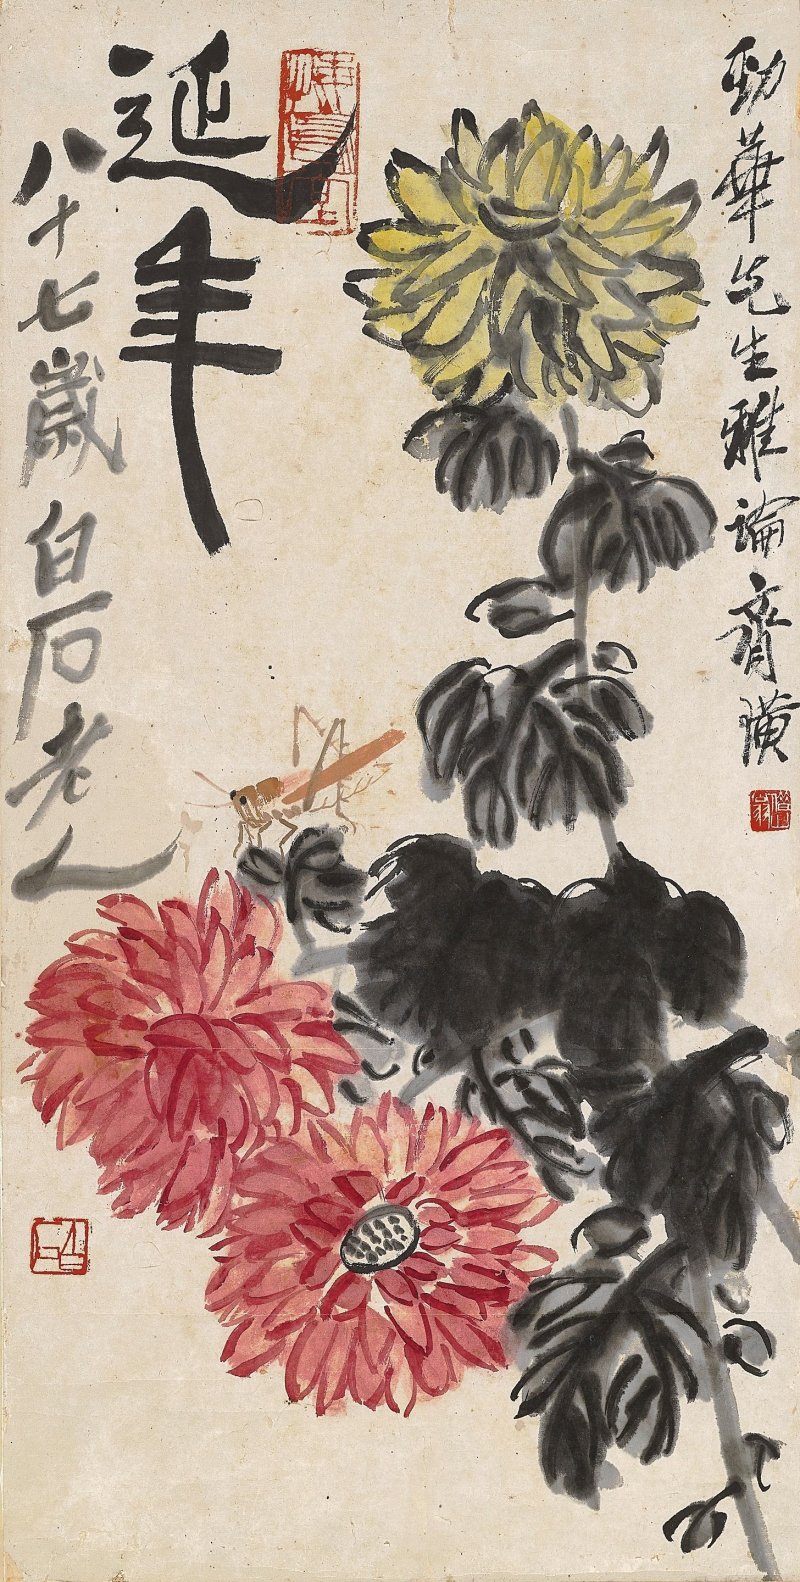 勁華先生雅論齊璜
延年
八十七歲白石老人